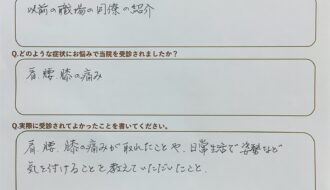 以前の職場の同僚の紹介
Q.どのような症状にお悩みで当院を受診されましたか?
肩、腰、膝の痛み
Q.実際に受診されてよかったことを書いてください。
肩、腰、膝の痛みが取れたことや、日常生活で姿勢など
気を付けることを教えていただいたこと。